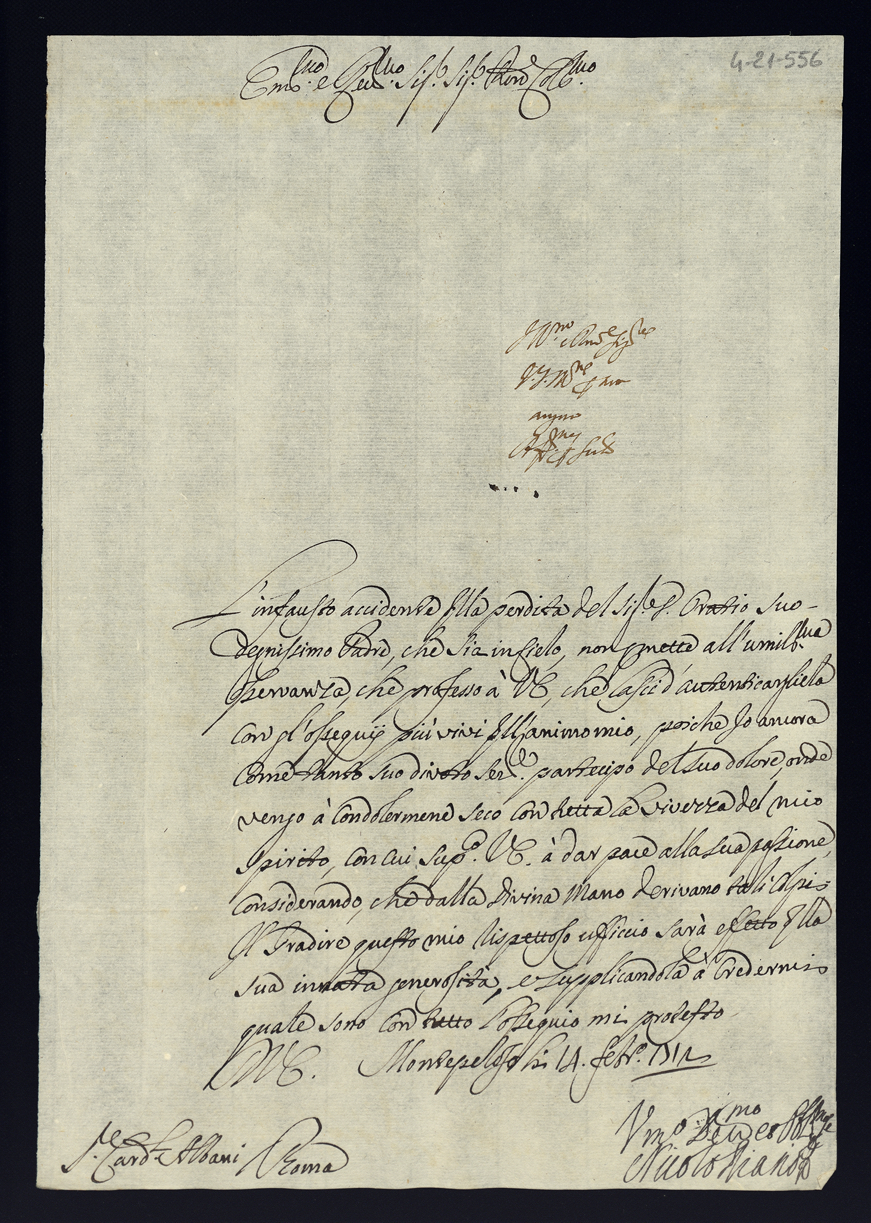 4-21-556
Em.mo e Rev.mo Sig.r Sig.r Pron.e Col.mo
L'infausto accidente della perdita del Sig.r D. Oratio suo
degnissimo Padre, che sia in Cielo, non permette all'umilis.ma
osservanza, che professo à V.E., che lasci d'autenticargliela
con gl'ossequij più vivi dell'animo mio, poiche Io ancora
come tanto suo divoto ser.re partecipo del suo dolore, onde
vengo à condolermene seco con tutta la vivezza del mio
spirito, con cui sup.co V.E. à dar pace alla sua passione,
considerando, che dalla Divina Mano derivano tali colpi:
Il Gradire questo mio rispettoso ufficio sarà effetto della
sua innata generosità, e supplicandola à credermi
quale sono con tutto l'ossequio mi protesto
D.V.E. Montepeloso li 14. Febr.o
S.r Card.le Albani Roma